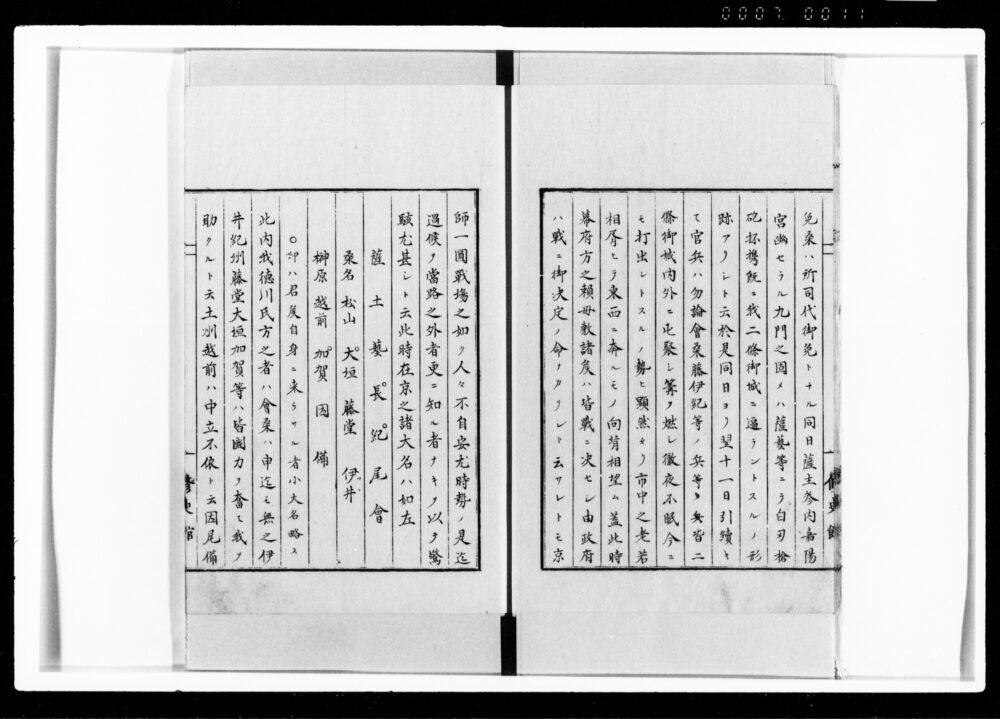 0007 0011
免桑ハ所司代御免トナル同日薩主参内嘉陽
宮幽セラル九門之固メハ薩藝等ニラ白刃槍
砲抔携既ニ我二條御城ニ逼ラントスルノ形
跡アリシト云於是同日ヨリ翌十一日引續キ
て官兵ハ勿論會桑藤伊紀等ノ兵等ヲ皆二
條御城内外ニ屯聚シ篝ヲ燃シ徹夜不眠今ニ
モ打出シトスルノ勢ヒ顕然タリ市中之老若
相胥ヒラ東西ニ奔ルモノ向背相望ム蓋此時
幕府方之頼母敷諸矦ハ皆戦ニ决セシ由政府
ハ戦ニ御決定ノ命ノカリシト云サレトモ京
修史館
師一圓戦場之如ク人々不自安尤時勢ノ是迄
過候ヲ當路之外者更ニ知ル者ナキヲ以ラ驚
駭尤甚シト云此時在京之諸大名ハ如左
薩 土 藝 長 紀 尾 會
桑名 松山 大垣 藤堂 伊井
榊原 越前 加賀 因 備
○印ハ君矦自身ニ来ラサル者小大名略ス
此内我徳川氏方之者ハ會桑ハ申迄モ無之伊
井紀州藤堂大垣加賀等ハ皆國力ヲ奮て我ヲ
助クルト云土州越前ハ中立不倚ト云因尾備
修史館